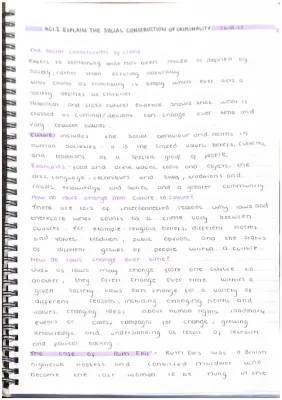 AC1.2 EXPLAIN THE SOCIAL CONSTRUCTION OF CRIMINALITY
The social construction of crime
something that has been made or defined by
society, rather than
what counts as criminality is simply whatever acts a
society defines as criminal.
Historical and cross-cultural evidence shows that what is
classed as criminal/deviant can change over time and
vary between cultures.
Culture: includes the social behaviour and norms in
human societies - it is the shared values, beliefs, customs,
and traditions of a specific group of people.
Examples:
arts, language, traditions and
rituals, knowledge and beliefs, and a greater community
How do laws change from culture to culture?
There are lots of interrelated reasons why laws and
therefore what counts as a crime vary between
cultures. For example: religious beliefs, different norms
and values, tradition, public opinion, and the status
of different groups of people within a culture.
How do laws change over time?
Just as laws may change from one culture to
another, they often change over time within a
given society. Laws can change for a variety of
different reasons, including changing norms and
values, changing ideas about human rights, landmark
events or cases, campaigns for change, growing
knowledge and understanding as result of research
and political backing.
The case of Ruth Ellis - Ruth Ellis was a British
nightclub hostess and convicted murderer who
became the last woman to be hung in the